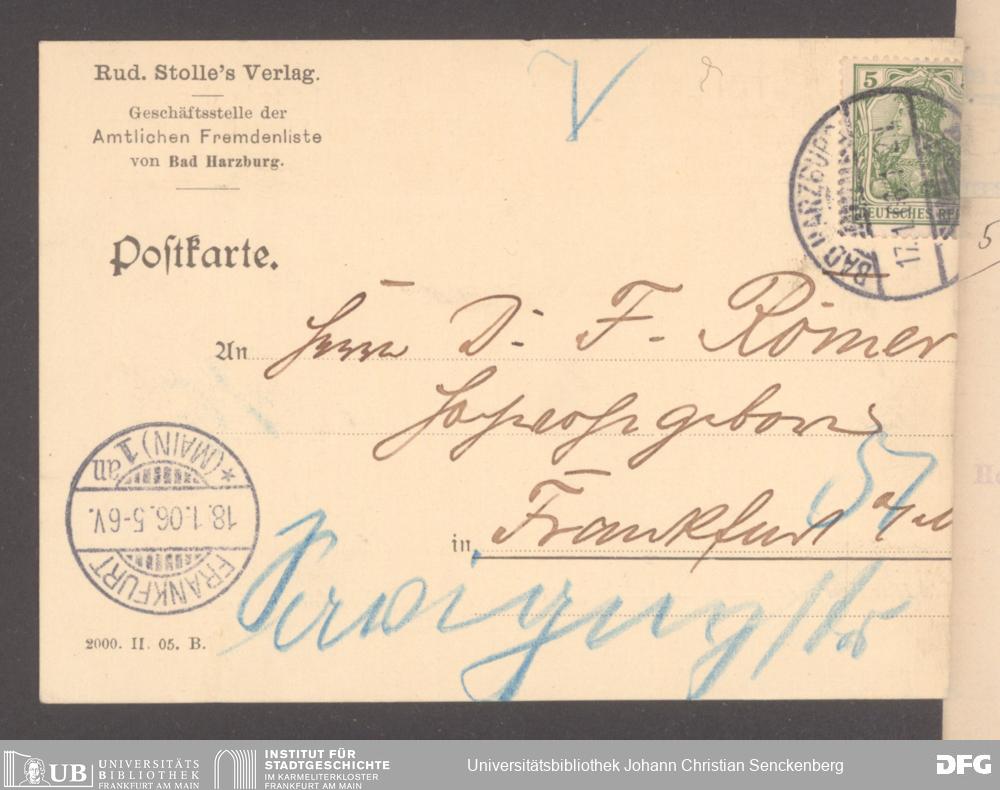 Rud. Stolle's Verlag.
Geschäftsstelle der
Amtlichen Fremdenliste
von Bad Harzburg.
V
5
DEUTSCHES RE
BAD HARZBUR
17.1.
Postkarte.
5
An Herrn Dr. F. Römer
Hochwohlgeboren
in Frankfurt a/M
FRANKFURT
18.1.06.5-6V.
*(MAIN) 1 an
2000. II. 05. B.
UB UNIVERSITÄTS
BIBLIOTHEK
FRANKFURT AM MAIN
INSTITUT FÜR
STADTGESCHICHTE
IM KARMELITERKLOSTER
FRANKFURT AM MAIN
Universitätsbibliothek Johann Christian Senckenberg
DFG